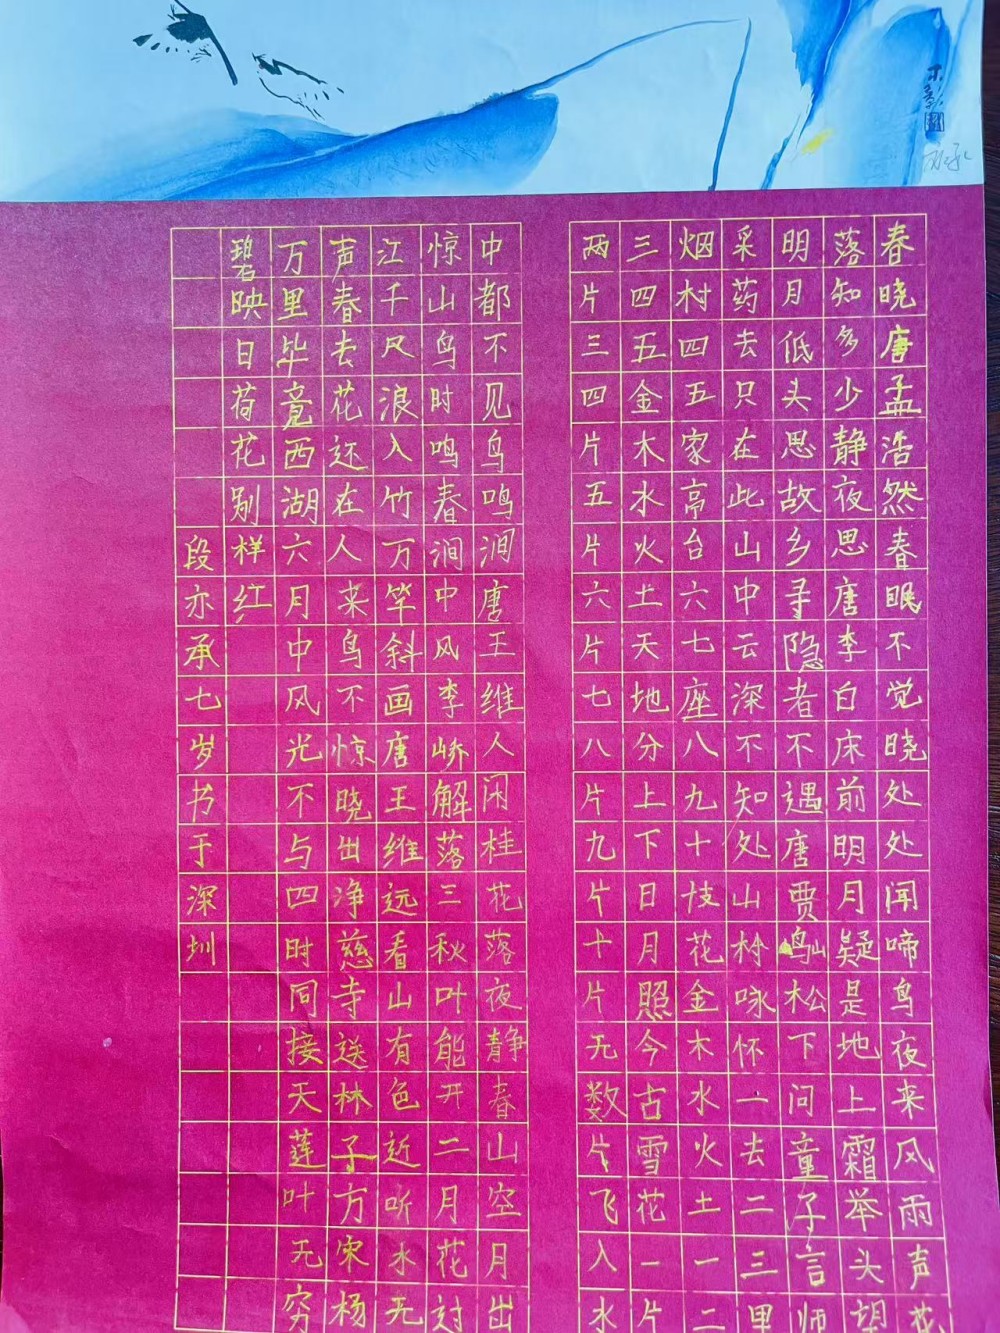 春晓唐孟浩然春眠不觉晓处处闻啼鸟夜来风雨声花
落知多少静夜思唐李白床前明月疑是地上霜举头望
明月低头思故乡寻隐者不遇唐贾岛松下问童子言师
采药去只在此山中云深不知处山村咏怀一去二三里
烟村四五家亭台六七座八九十枝花金木水火土一二
三四五金木水火土天地分上下日月照今古雪花一片
两片三四片五片六片七八片九片十片无数片飞入水
中都不见鸟鸣涧唐王维人闲桂花落夜静春山空月出
惊山鸟时鸣春涧中风李峤解落三秋叶能开二月花过
江千尺浪入竹万竿斜画唐王维远看山有色近听水无
声春去花还在人来鸟不惊晓出净慈寺送林子方宋杨
万里毕竟西湖六月中风光不与四时同接天莲叶无穷
碧映日荷花别样红
段亦承七岁书于深圳